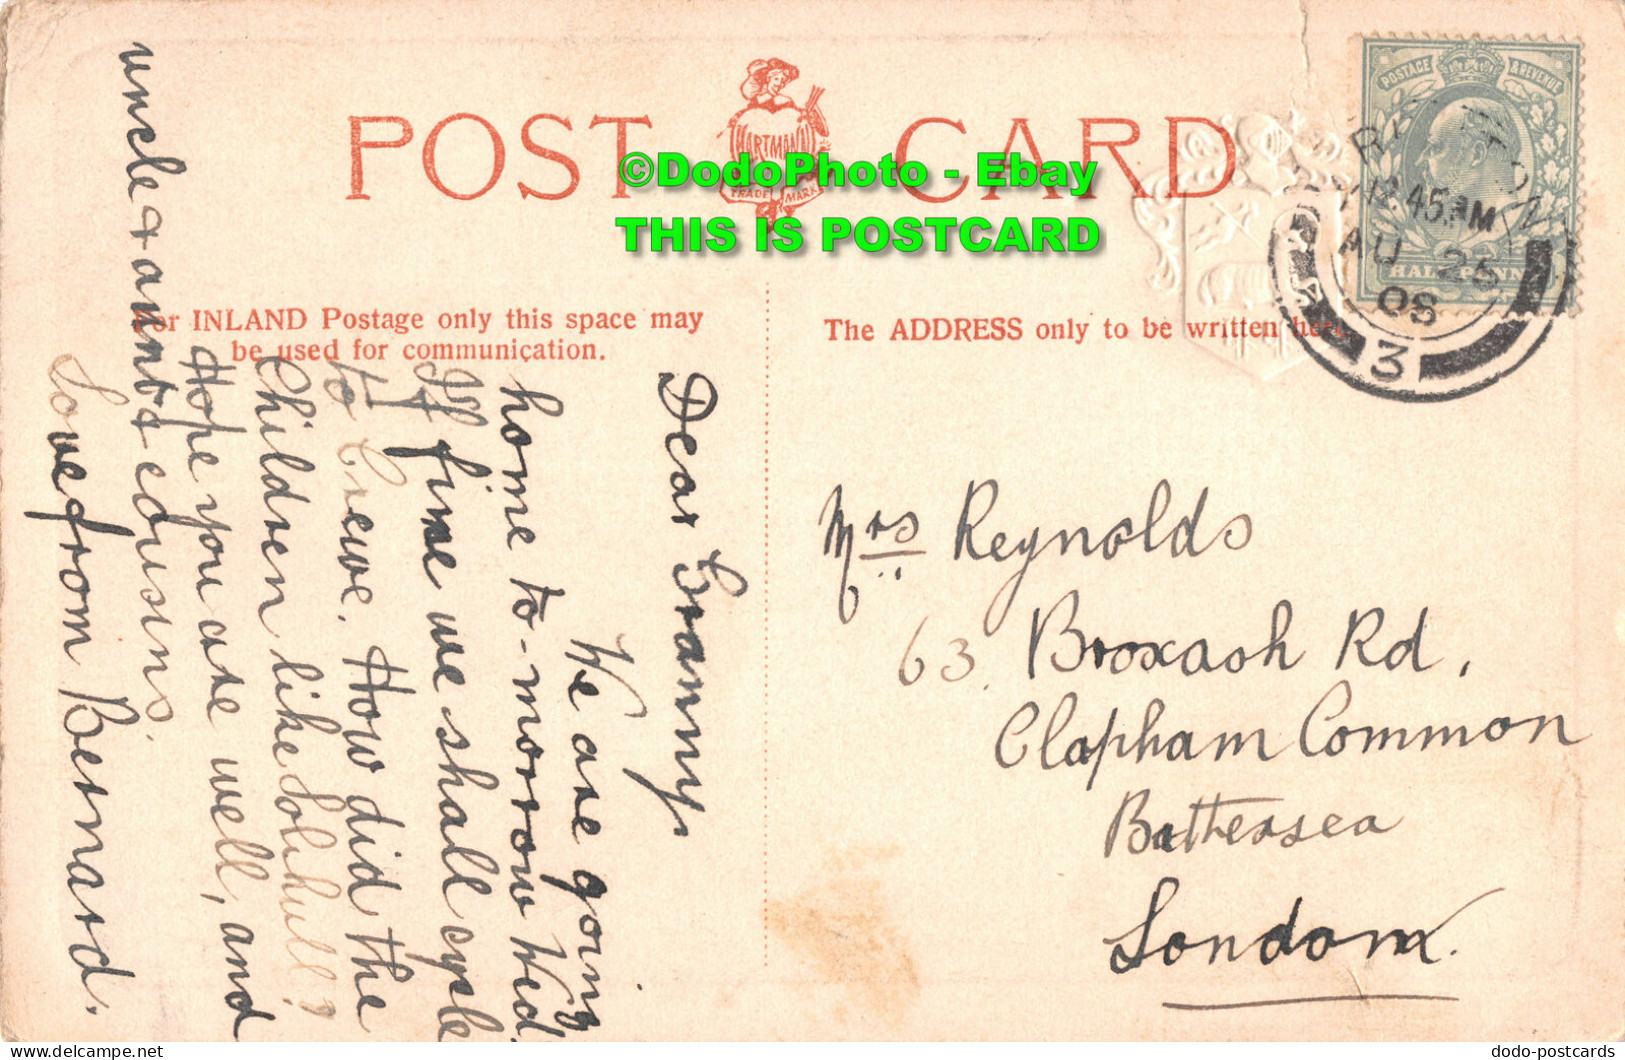 POST CARD
HARTMANN
TRADE MARK
©DodoPhoto - Ebay
THIS IS POSTCARD
POSTAGE & REVENUE
HALFPENNY
12.45 AM
AU 25
08
3
For INLAND Postage only this space may
be used for communication.
The ADDRESS only to be written here.
Dear Granny,
We are going
home to-morrow Wed.
If fine we shall sycle
to Crewe. How did the
Children like Solihull?
Hope you are well, and
uncle & aunt & cousins.
Love from Bernard.
Mrs Reynolds
63. Broxash Rd,
Clapham Common
Battersea
London.
dodo-postcards